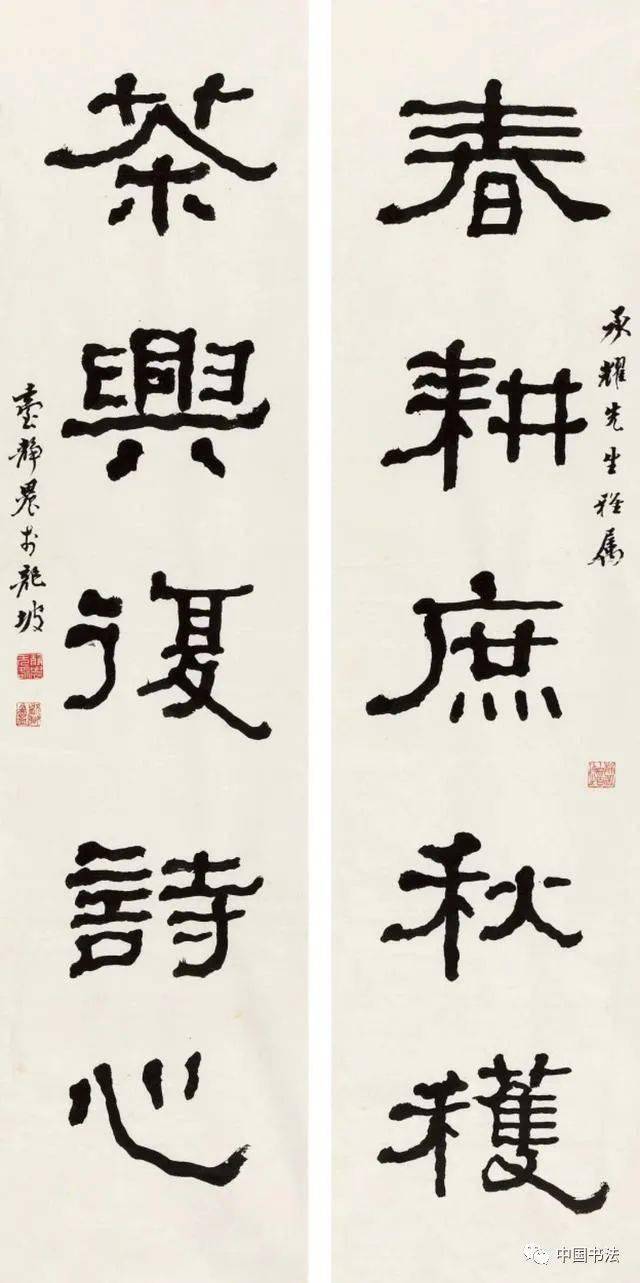 承耀先生雅属
春耕庶秋穫
茶興復詩心
臺靜農於龍坡
中国书法